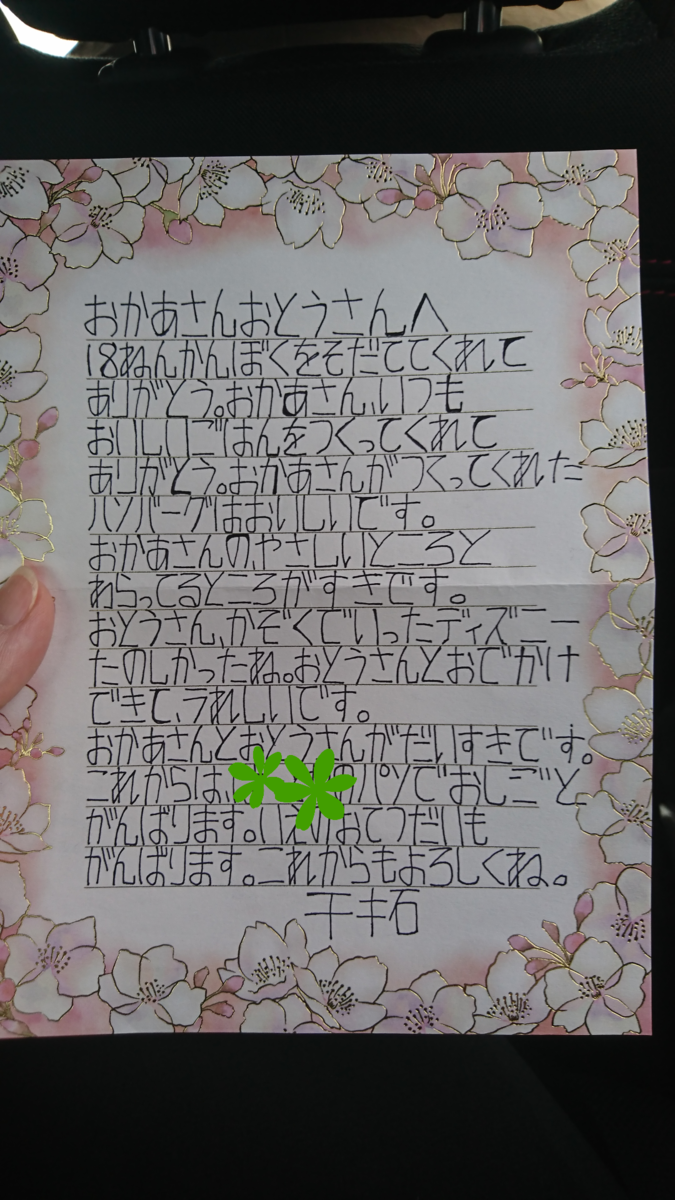 おかあさんおとうさんへ
18ねんかんぼくをそだててくれて
ありがとう。おかあさん、いつも
おいしいごはんをつくってくれて
ありがとう。おかあさんがつくってくれた
ハンバーグはおいしいです。
おかあさんの、やさしいところと
わらってるところがすきです。
おとうさん、かぞくでいったディズニー
たのしかったね。おとうさんとおでかけ
できて、うれしいです。
おかあさんとおとうさんがだいすきです。
これからは、のパンでおしごと
がんばります。いえのおてつだいも
がんばります。これからもよろしくね。